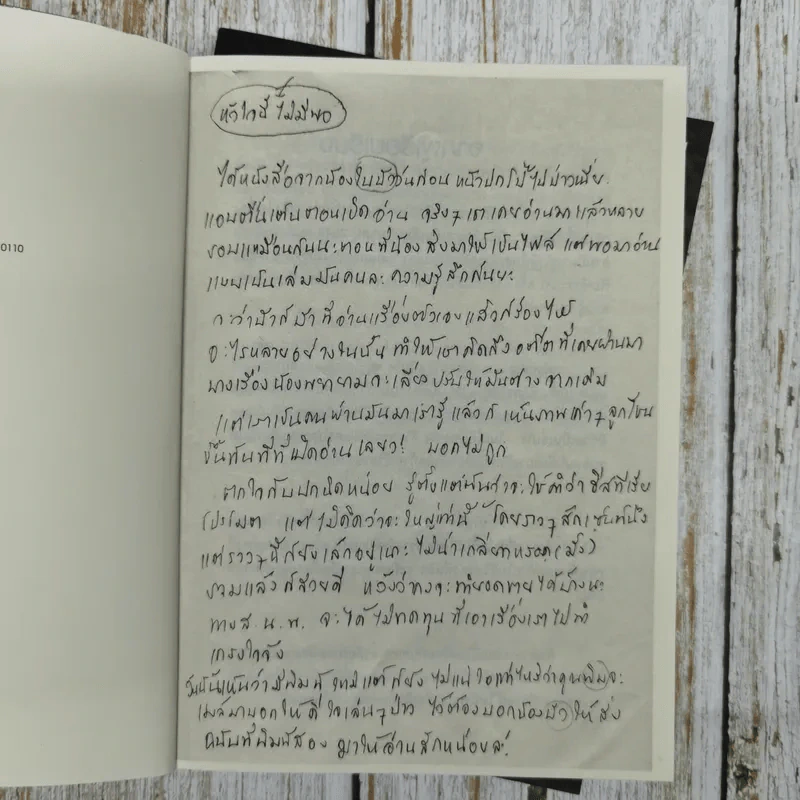 0110
หัวใจนี้ ไม่มีพอ
ได้หนังสือจากน้องใบบัววันก่อน หน้าปกโป๊ไปป่าวเนี่ย
แอบตื่นเต้นตอนเปิดอ่าน จริงๆ เราเคยอ่านมาแล้วหลาย
รอบเหมือนกันนะตอนที่น้อง ส่งมาให้เป็นไฟล์ แต่พอมาอ่าน
แบบเป็นเล่มมันคนละ ความรู้สึกกันยะ
จะว่าขำก็ขำ ที่อ่านเรื่องตัวเองแล้วก็ร้องไห้
อะไรหลายอย่างในนั้น ทำให้เราคิดถึง อดีต ที่เคยผ่านมา
บางเรื่องน้องพยายามจะเลี่ยง ปรับให้มันต่าง จากเดิม
แต่เราเป็นคนผ่านมันมา เรารู้ แล้วก็ เห็นภาพเก่าๆ
ขึ้นทันทีที่เปิดอ่าน เลยว! บอกไม่ถูก
ตกใจกับปกนิดหน่อย รู้ตั้งแต่ต้นว่าจะใช้คำว่า
แต่ไม่คิดว่าจะใหญ่เท่านี้ โดยราวๆ สักเซ็นต์นึง
แต่ราวๆ นี้ก็ยังเล็กอยู่นะ ไม่น่าเกลียดหรอก (มั้ง)
รวมแล้วก็สวยดี หวังว่าคงจะทำยอดขายได้บ้างนะ
ทาง ส.น.พ. จะได้ไม่ขาดทุน ที่เอาเรื่องเราไปทำ
เกรงใจจัง
วันนั้นเห็นว่ามีพิมพ์ใหม่ แต่ก็ยังไม่แน่ใจ ว่าคุณพิมจะ
เมล์มาบอกให้ดีใจเล่นๆ ป่าว ไว้ต้องบอกน้องบัวให้ส่ง
ฉบับที่พิมพ์สอง มาให้อ่านสักหน่อยละ!